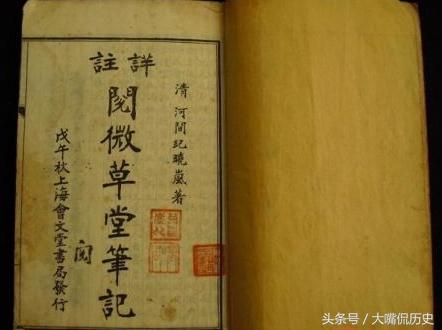 清 河間紀曉嵐著
詳註
閱微草堂筆記
戊午秋上海會文堂書局發行
閱
头条号／大嘴侃历史